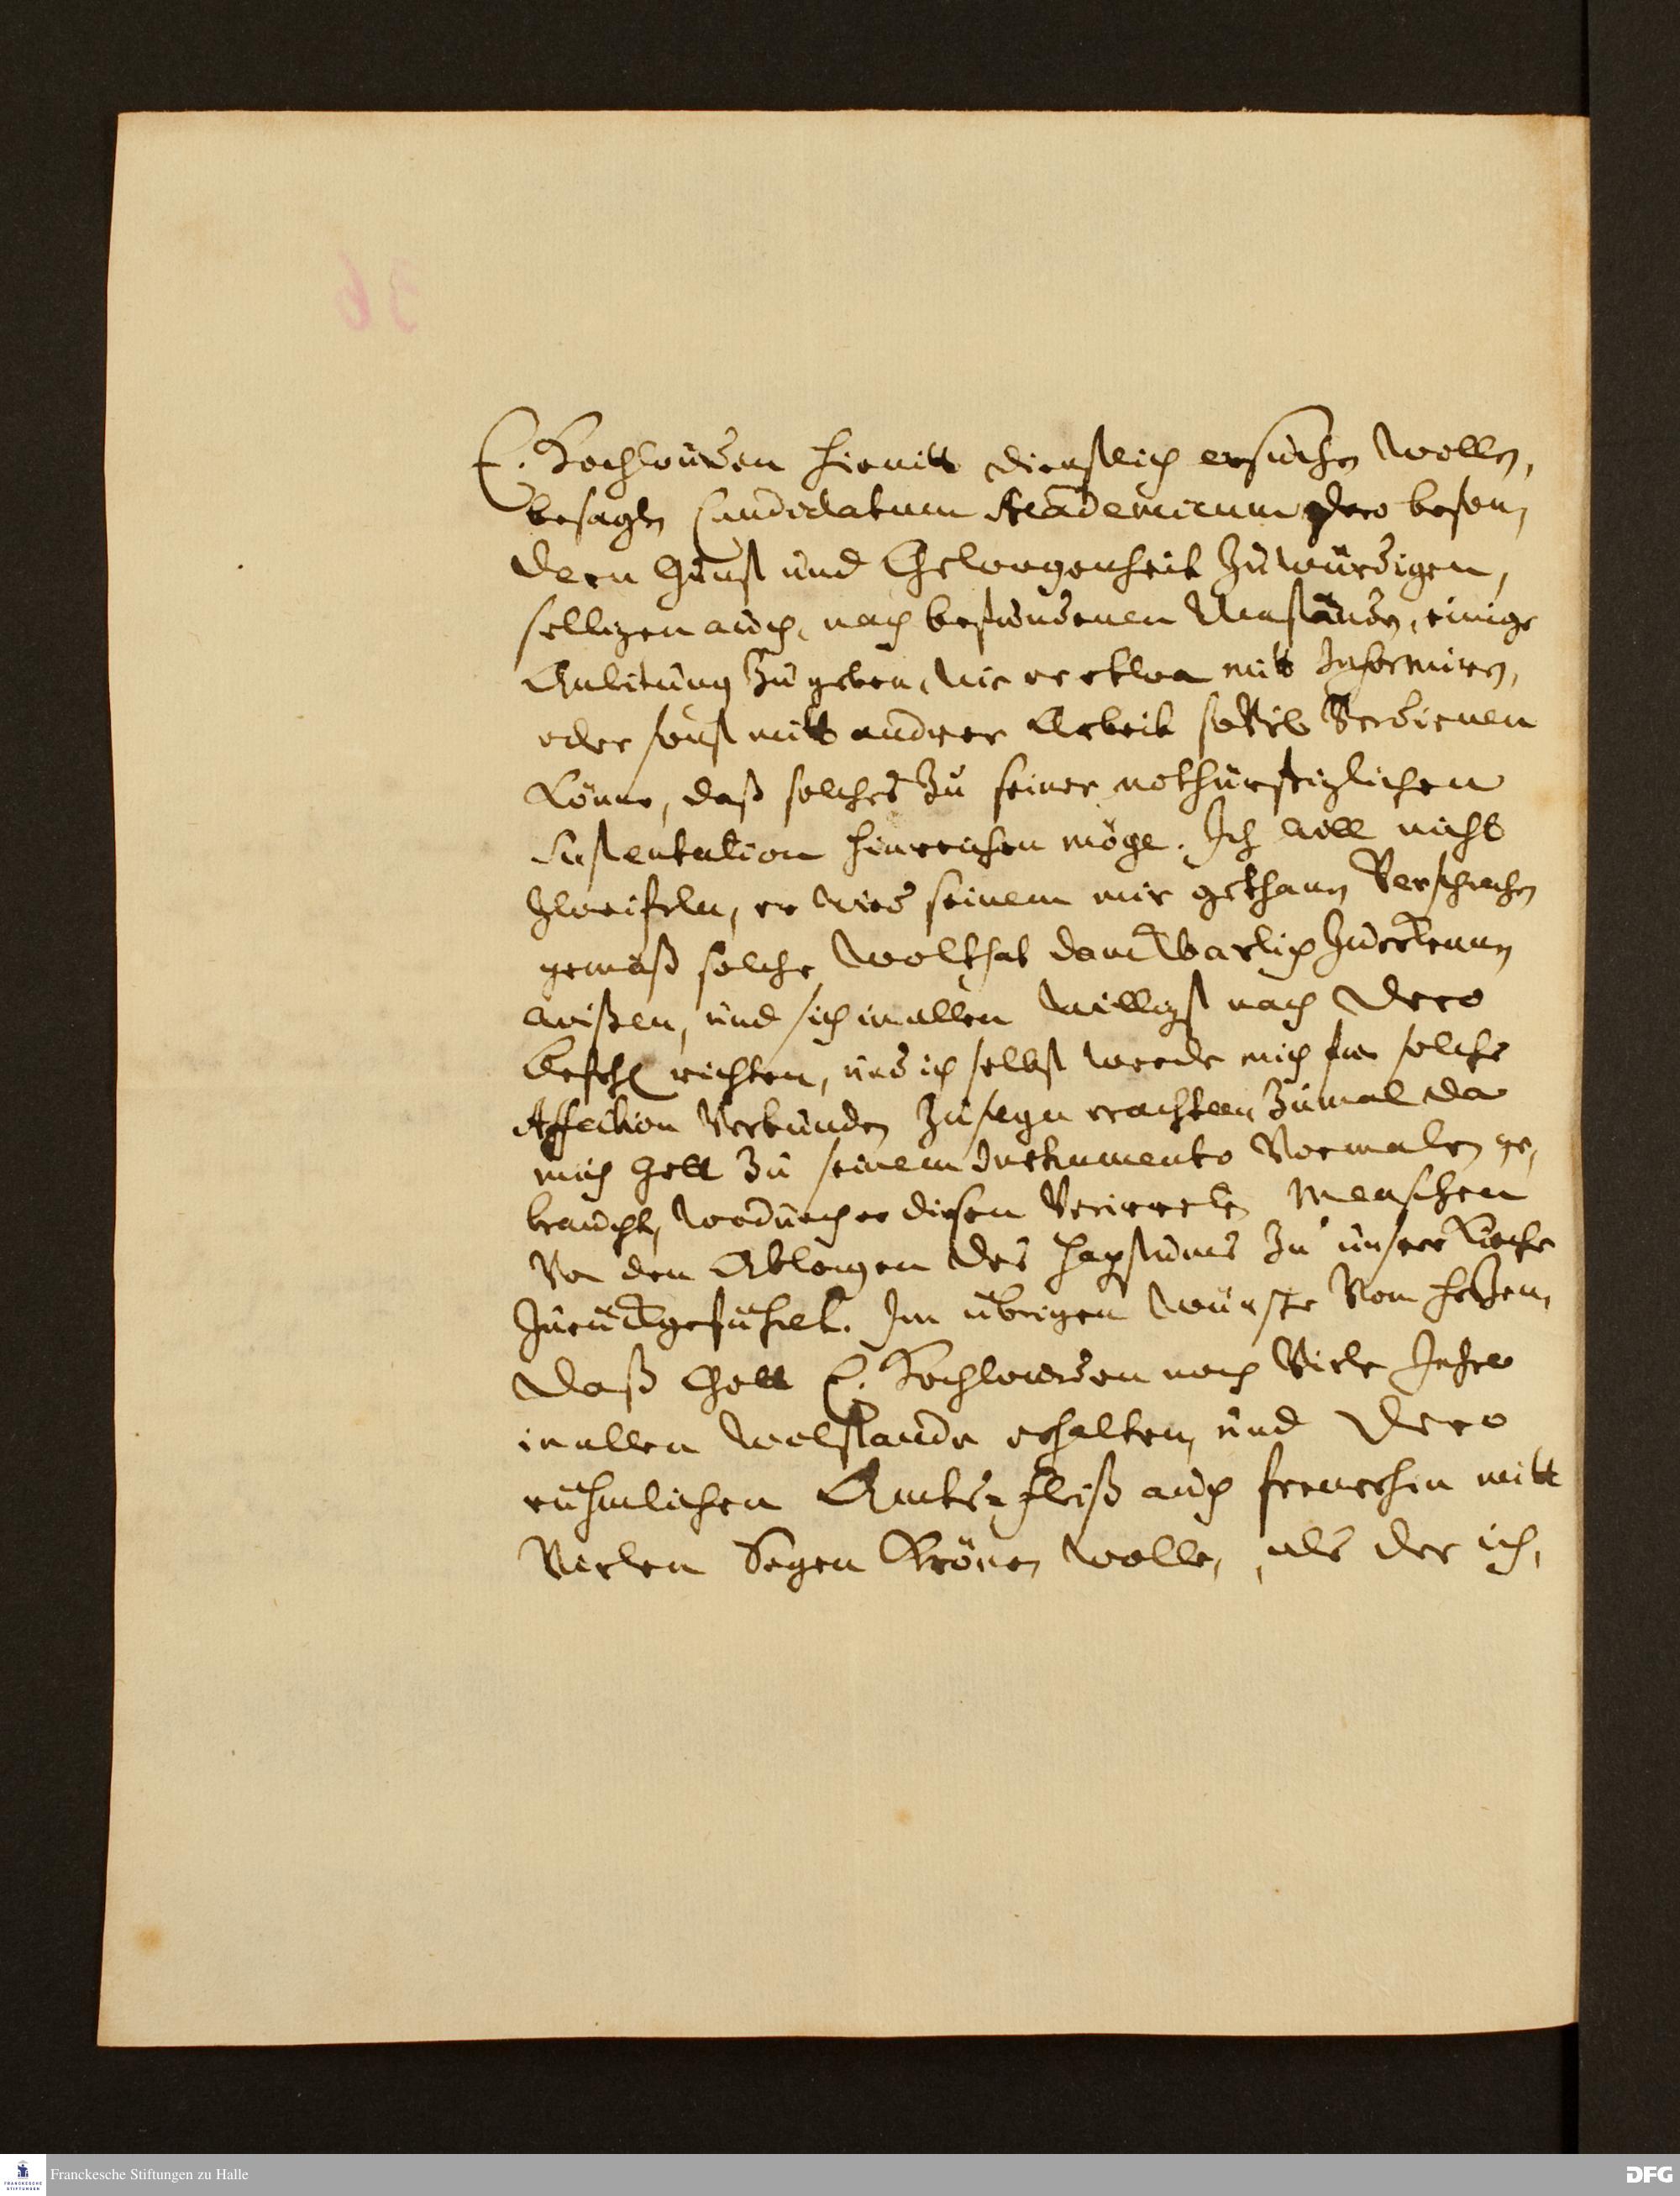 E. Hochlöwden hiemitt dienstlich ersuchen wollen,
besagten Candidatum Academicum dero beson,
dern Gunst und Gewogenheit zu würdigen,
selbigen auch, nach befundenen Umständen, einige
Anleitung zu geben, wie er etwa mit Informiren,
oder sonst mitt andrer Arbeit soviel Verdienen
könne, daß solches zu seiner nothürftiglichen
Sustentation hinreichen möge. Ich will nicht
zweifeln, er wird seinem mir gethanen Versprechen
gemäß solche Wolthat danckbarlich zuerkennen
wißen, und sich in allen willigst nach Dero
Befehl richten, und ich selbst werde mich für solche
Affection Verbunden zu seyn erachten, zumal da
mich Gott zu seinem Instrumento Vormalen ge,
braucht, wodurch er diesen Verirreten Menschen
Von den Abwegen des Papstums zu unserer Kirche
zurückgeführet. Im übrigen wünsche Vom Herzen,
daß Gott E. Hochlöwden noch Viele Jahre
in allen Wolstande erhalten, und Dero
rühmlichen Amts-fleiß auch fernerhin mitt
Vielen Segen Krönen wolle, als der ich,
36
Franckesche Stiftungen zu Halle
DFG